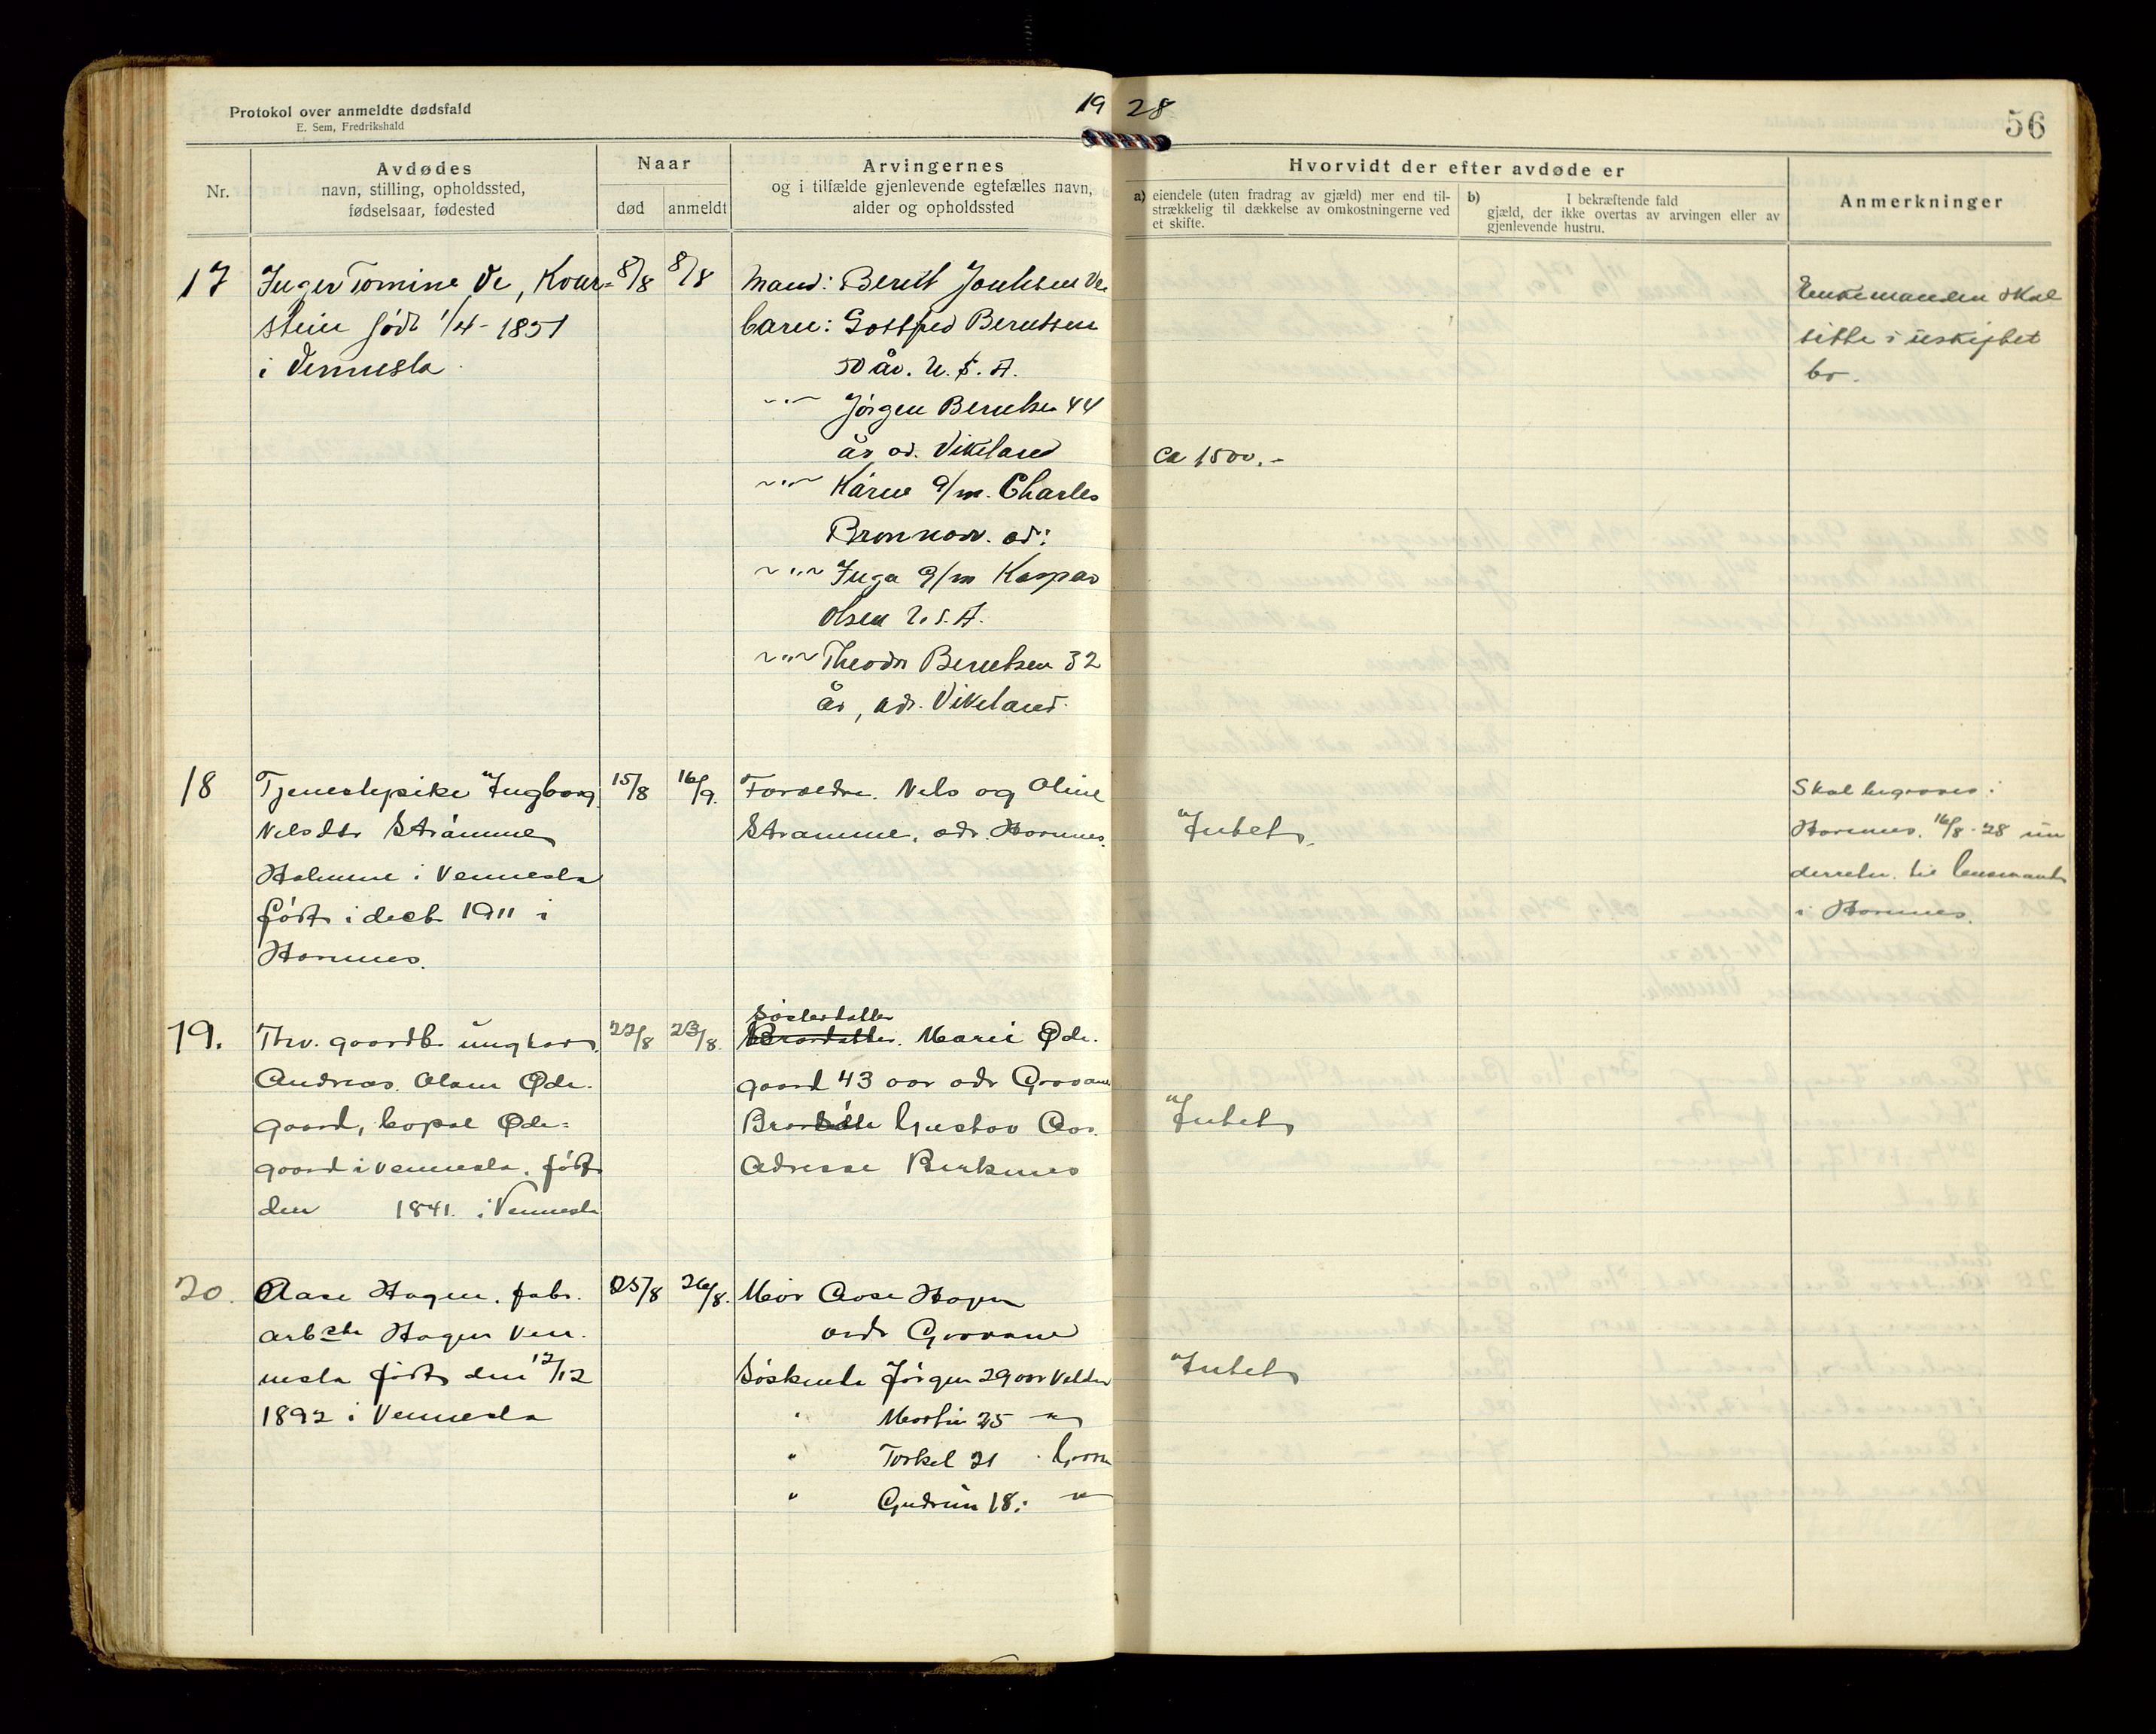 Protokol over anmeldte dødsfald
E. Sem, Fredrikshald
19 28
56
Nr.
Avdødes
navn, stilling, opholdssted,
fødselsaar, fødested
Naar
død
anmeldt
Arvingernes
og i tilfælde gjenlevende egtefælles navn,
alder og opholdssted
Hvorvidt der efter avdøde er
a) eiendele (uten fradrag av gjæld) mer end til-
strækkelig til dækkelse av omkostningerne ved
et skifte.
b) I bekræftende fald
gjæld, der ikke overtas av arvingen eller av
gjenlevende hustru.
Anmerkninger
17
Inger Tomine Ve, Kvar=
stein født 1/4 - 1851
i Vennesla
8/8
8/8
Mand: Berndt
barn: Gottfred Berntsen
50 år. U.S.A.
Jørgen Berntsen 44
år ad. Vikeland
Kårne g/m. Charles
ad:
Inga g/m Kaspar
Olsen U.S.A.
Theodor Berntsen 32
år, adr. Vikeland.
ca 1500.-
Enkemanden skal
sitte i uskiftet
bo.
18
Tjenestepike Ingborg
Nelsdtr Stramme
i Vennesla
født i decb 1911 i
Hornnes.
15/8
16/9.
Foreldre. Nels og Oline
Stramme, adr. Hornnes.
Intet
Skal begraves i
Hornnes. 16/8-28 un
derretn. til lensmand
i Hornnes.
19.
Thv. gaardb. ungkar
Andreas Olsen Øde-
gaard, Øde=
gaard i Vennesla, født
den 1841. i Vennesla
22/8
23/8.
Søsterdatter
Brordatter. Marie Øde-
gaard 43 aar adr Grovane
Gustav Aas.
Adresse Birkenes
Intet
20.
Aase Hagen. fabr.
arbske Hagen Ven-
nesla født den 12/12
1892 i Vennesla
25/8
26/8.
Mor Aase Hagen
adr Grovane
Søskende Jørgen 29 aar
" Martin 25 "
" Torkel 21
" Gudrun 18. "
Intet